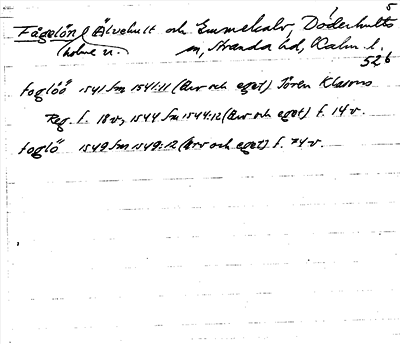 5
Fågelön Älvehult och Emmekalv, Döderhults
(holme u. sn, Stranda hd, Kalm. l.
526
Foglöö 1541 sm 1541:11 (Arv och eget) Jören Klasons
Reg. f. 18 v, 1544 sm 1544:12 (Arv och eget) f. 14 v.
Foglö 1549 sm 1549:12 (Arv och eget) f. 74 v.